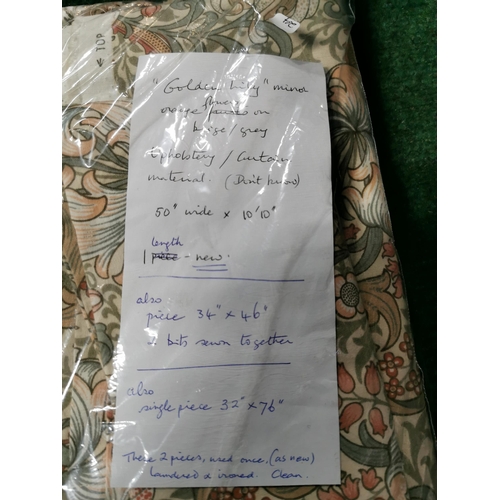 ← TOP
"Golden Lily" minor
flowers
orange on
beige/grey
Upholstery / Curtain
material. (Don't know)
50" wide x 10'10"
length
1 piece - new.
also
piece 34" x 46"
+ bits sewn together
also
single piece 32" x 76"
These 2 pieces, used once, (as new)
laundered & ironed. Clean.